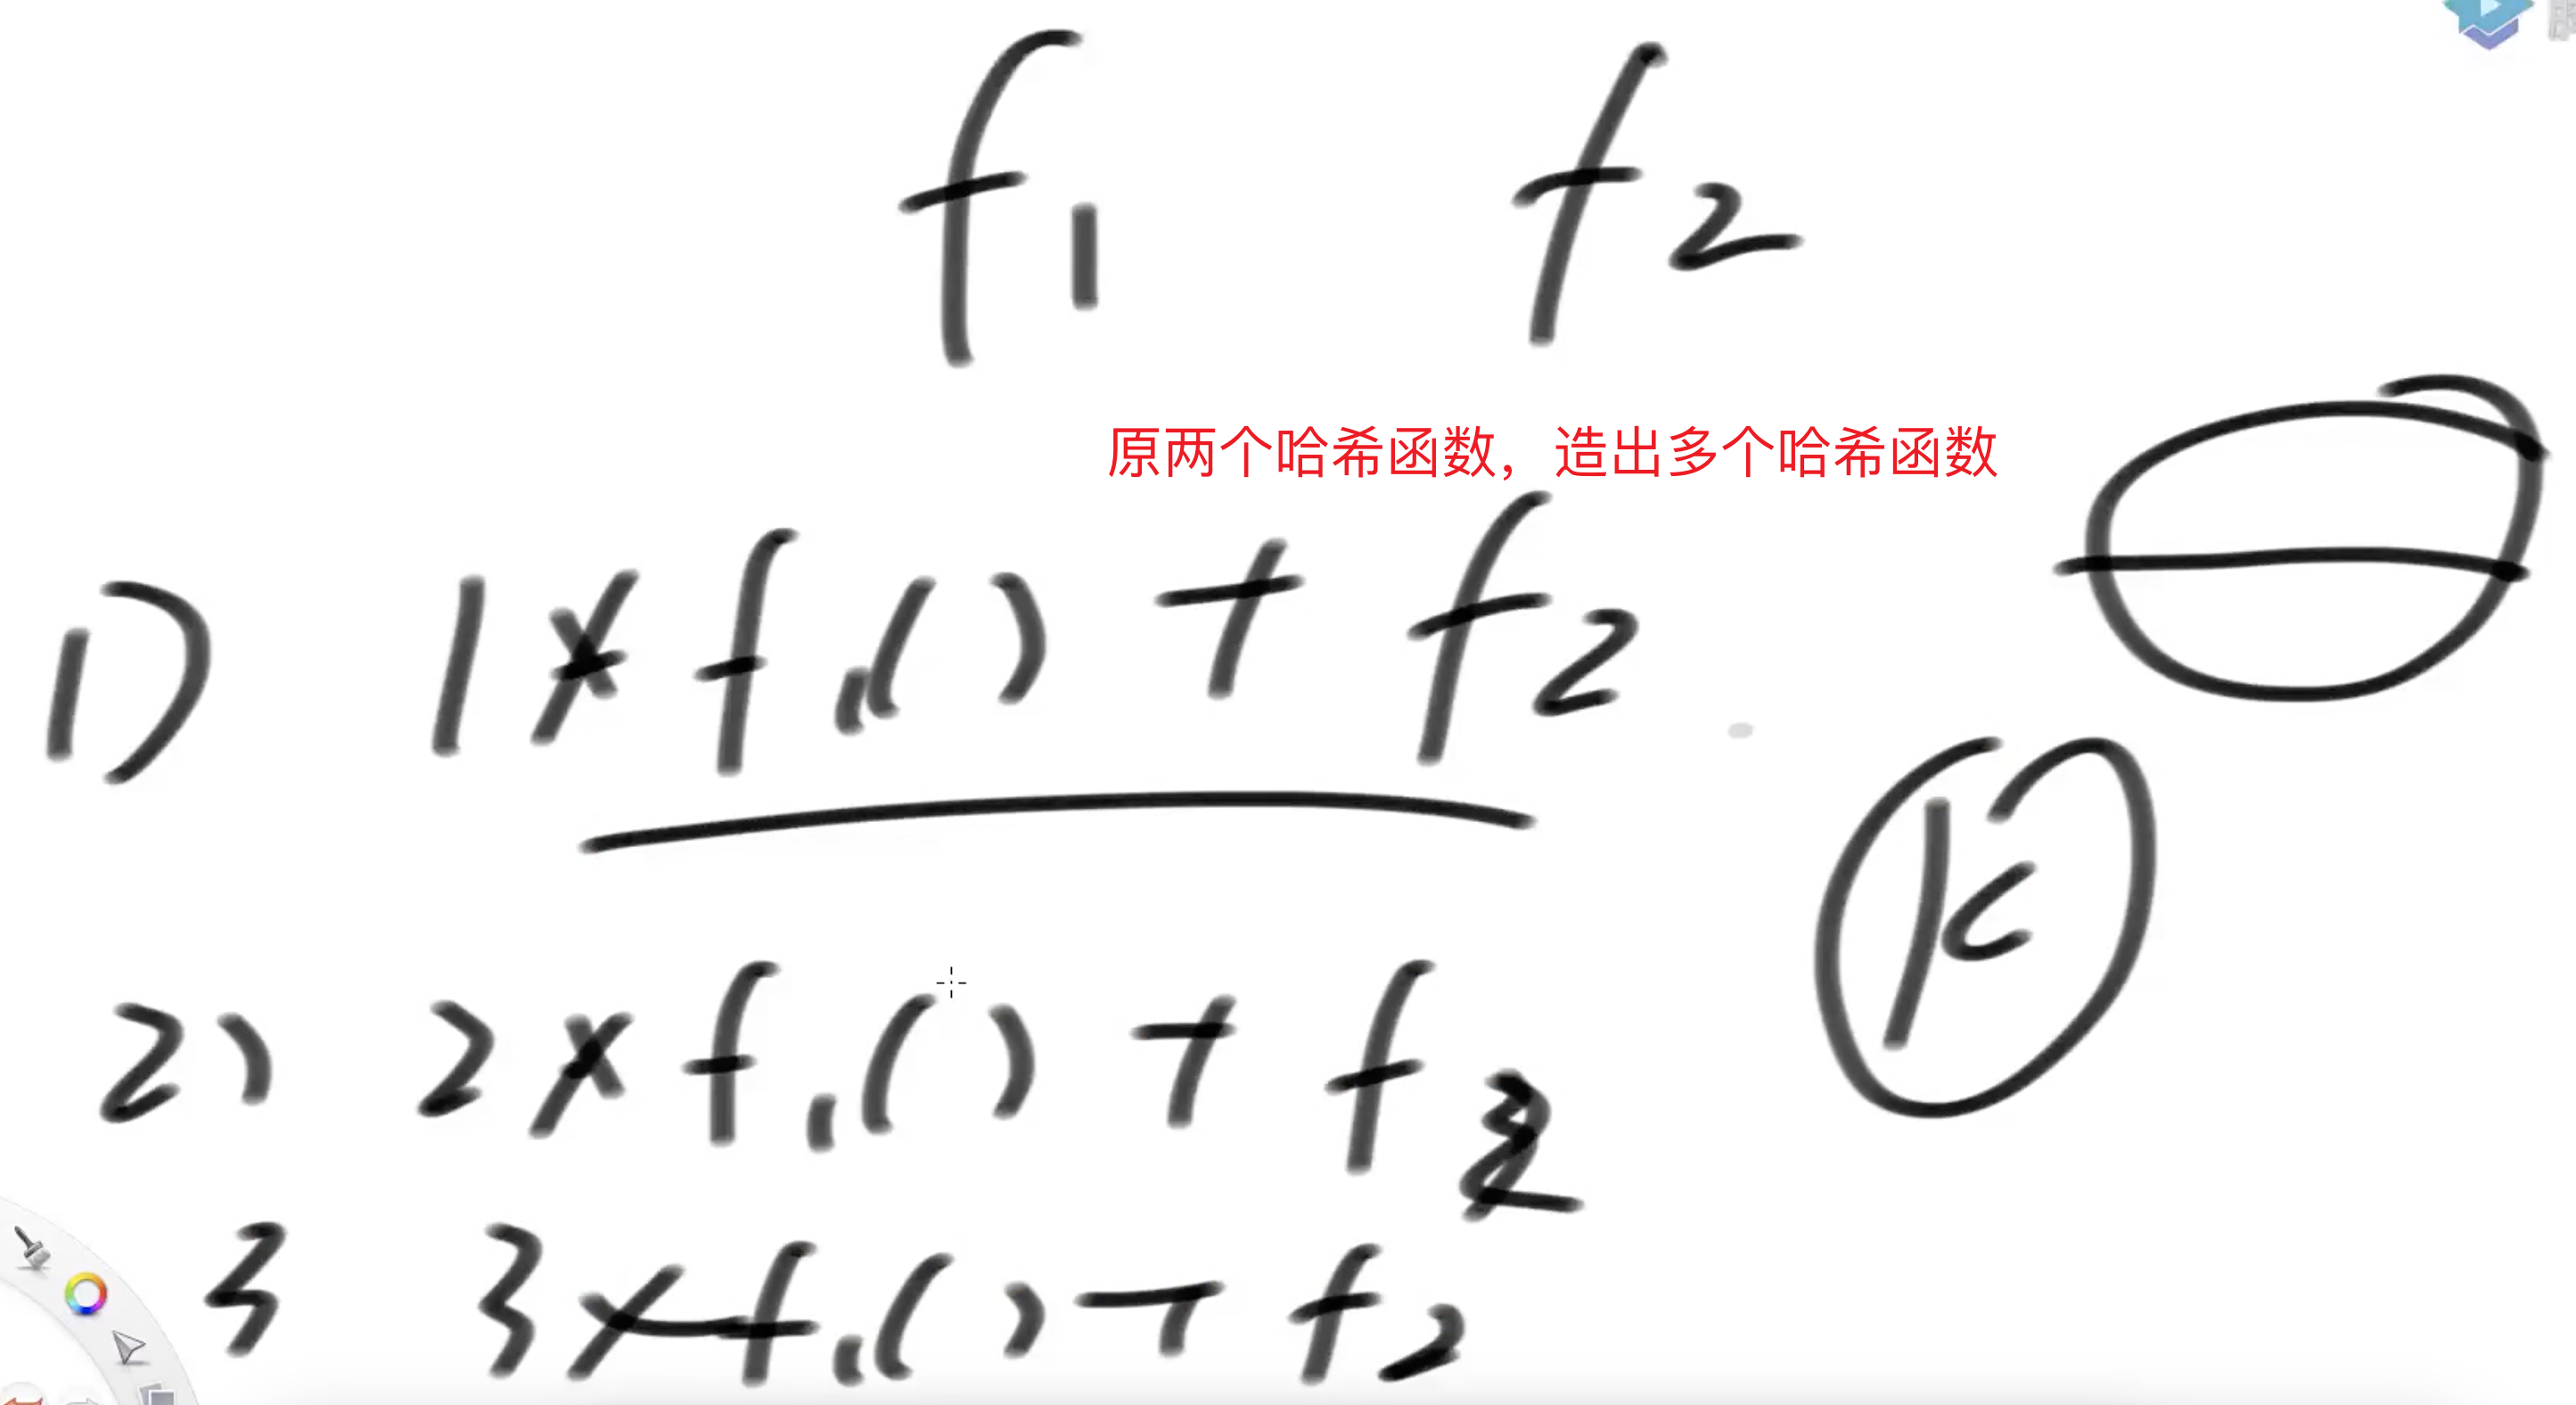 f1 f2
原两个哈希函数，造出多个哈希函数
1) 1 * f1() + f2
K
2) 2 × f1() + f2
3 3 × f1() + f2